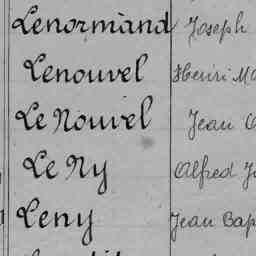 Lenormand Joseph
Lenouvel Henri
Le Nouvel Jean
Le Ny Alfred
Leny Jean Bap